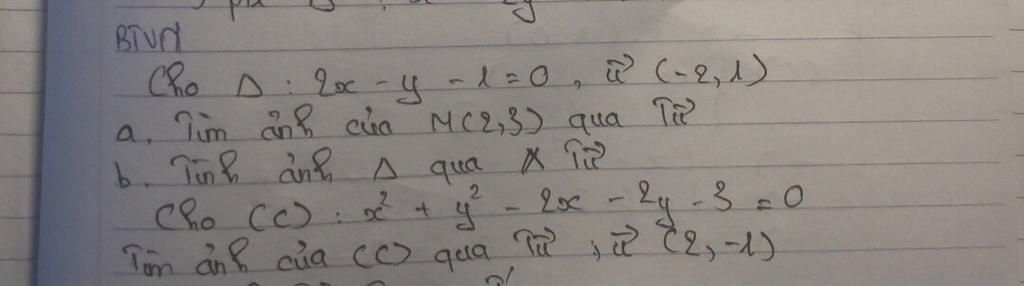 BTVN
Cho Δ : 2x - y - 1 = 0 , u⃗ (-2, 1)
a. Tìm ảnh của M(2,3) qua Tu⃗
b. Tính ảnh Δ qua Tu⃗
Cho (C) : x² + y² - 2x - 2y - 3 = 0
Tìm ảnh của (C) qua Tu⃗ , u⃗ (2, -1)